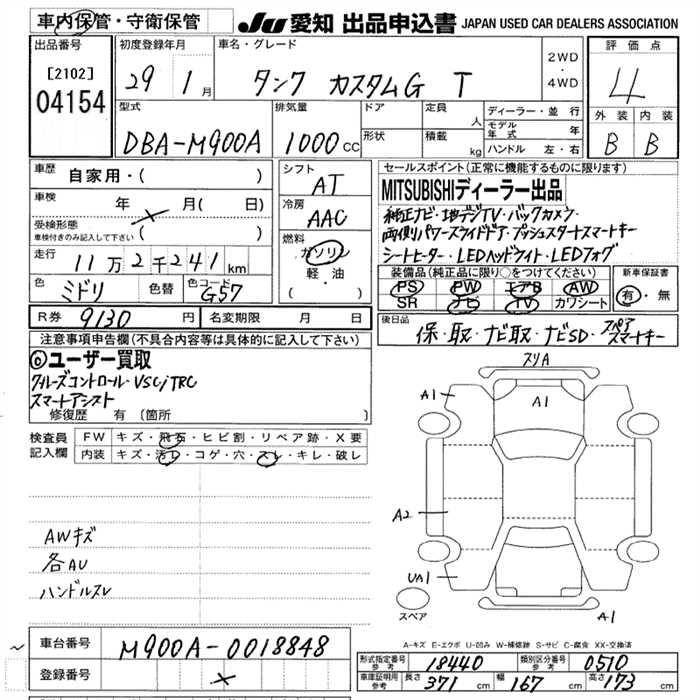 車内保管・守衛保管
JU 愛知 出品申込書 JAPAN USED CAR DEALERS ASSOCIATION
出品番号
[2102]
04154
初度登録年月
29 1月
車名・グレード
タンク カスタムG T
2WD
・
4WD
評価点
4
外装 内装
B B
型式
DBA-M900A
排気量
1000cc
ドア
形状
定員
人
積載
kg
ディーラー・並行
モデル年式 年
ハンドル 左・右
車歴
自家用・( )
車検
年 月( 日)
受検形態
車検付きのみ記入して下さい
( )
走行
11万2千241km
色
ミドリ
色替
色コード
G57
シフト
AT
冷房
AAC
燃料
ガソリン
軽・油
( )
R券 9130 円
名変期限 月 日
セールスポイント(正常に機能するものに限ります)
MITSUBISHIディーラー出品
純正ナビ・地デジTV・バックカメラ・
両側パワースライドドア・プッシュスタートスマートキー
シートヒーター・LEDヘッドライト・LEDフォグ
装備品(純正品に限り○をつけてください)
PS PW エアB AW
SR ナビ TV カワシート
新車保証書
有・無
後日品
保・取・ナビ取・ナビSD・スペアスマートキー
注意事項申告欄(不具合内容等は具体的に記入して下さい)
⑥ユーザー買取
クルーズコントロール・VSC/TRC
スマートアシスト
修復歴 有 (箇所 )
検査員
記入欄
FW キズ・飛石・ヒビ割・リペア跡・X要
内装 キズ・汚レ・コゲ・穴・スレ・キレ・破レ
AWキズ
各AU
ハンドルスレ
スリA
A1
A1
A1
A2
UA1
A1
スペア
A-キズ E-エクボ U-凹み W-補修跡 S-サビ C-腐食 XX-交換済
車台番号
M900A-0018848
登録番号
形式指定番号
参考
18440
類別区分番号
参考
0510
車庫証明用
参考
長さ 371 cm
幅 167 cm
高さ 173 cm